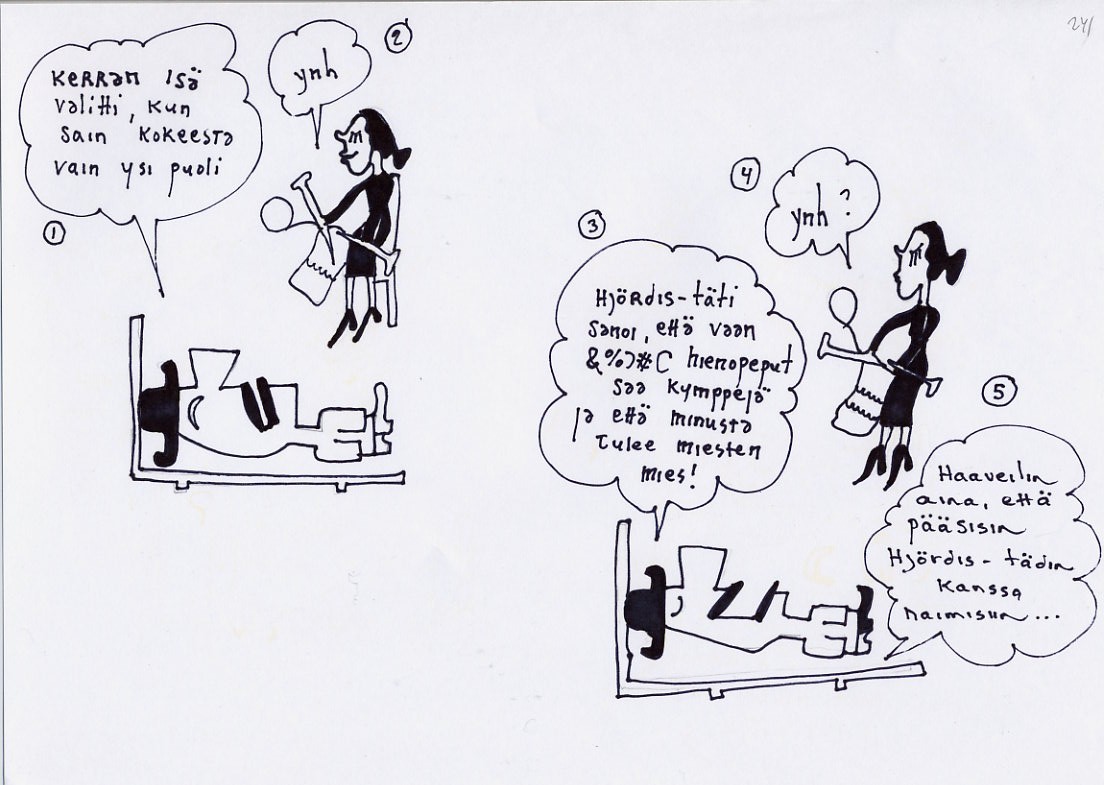 1
Kerran isä
valitti, kun
sain kokeesta
vain ysi puoli
2
ynh
3
Hjördis-täti
sanoi, että vaan
&%)#C hienopeput
saa kymppejä
ja että minusta
tulee miesten
mies!
4
ynh?
5
Haaveilin
aina, että
pääsisin
Hjördis-tädin
kanssa
naimisiin...